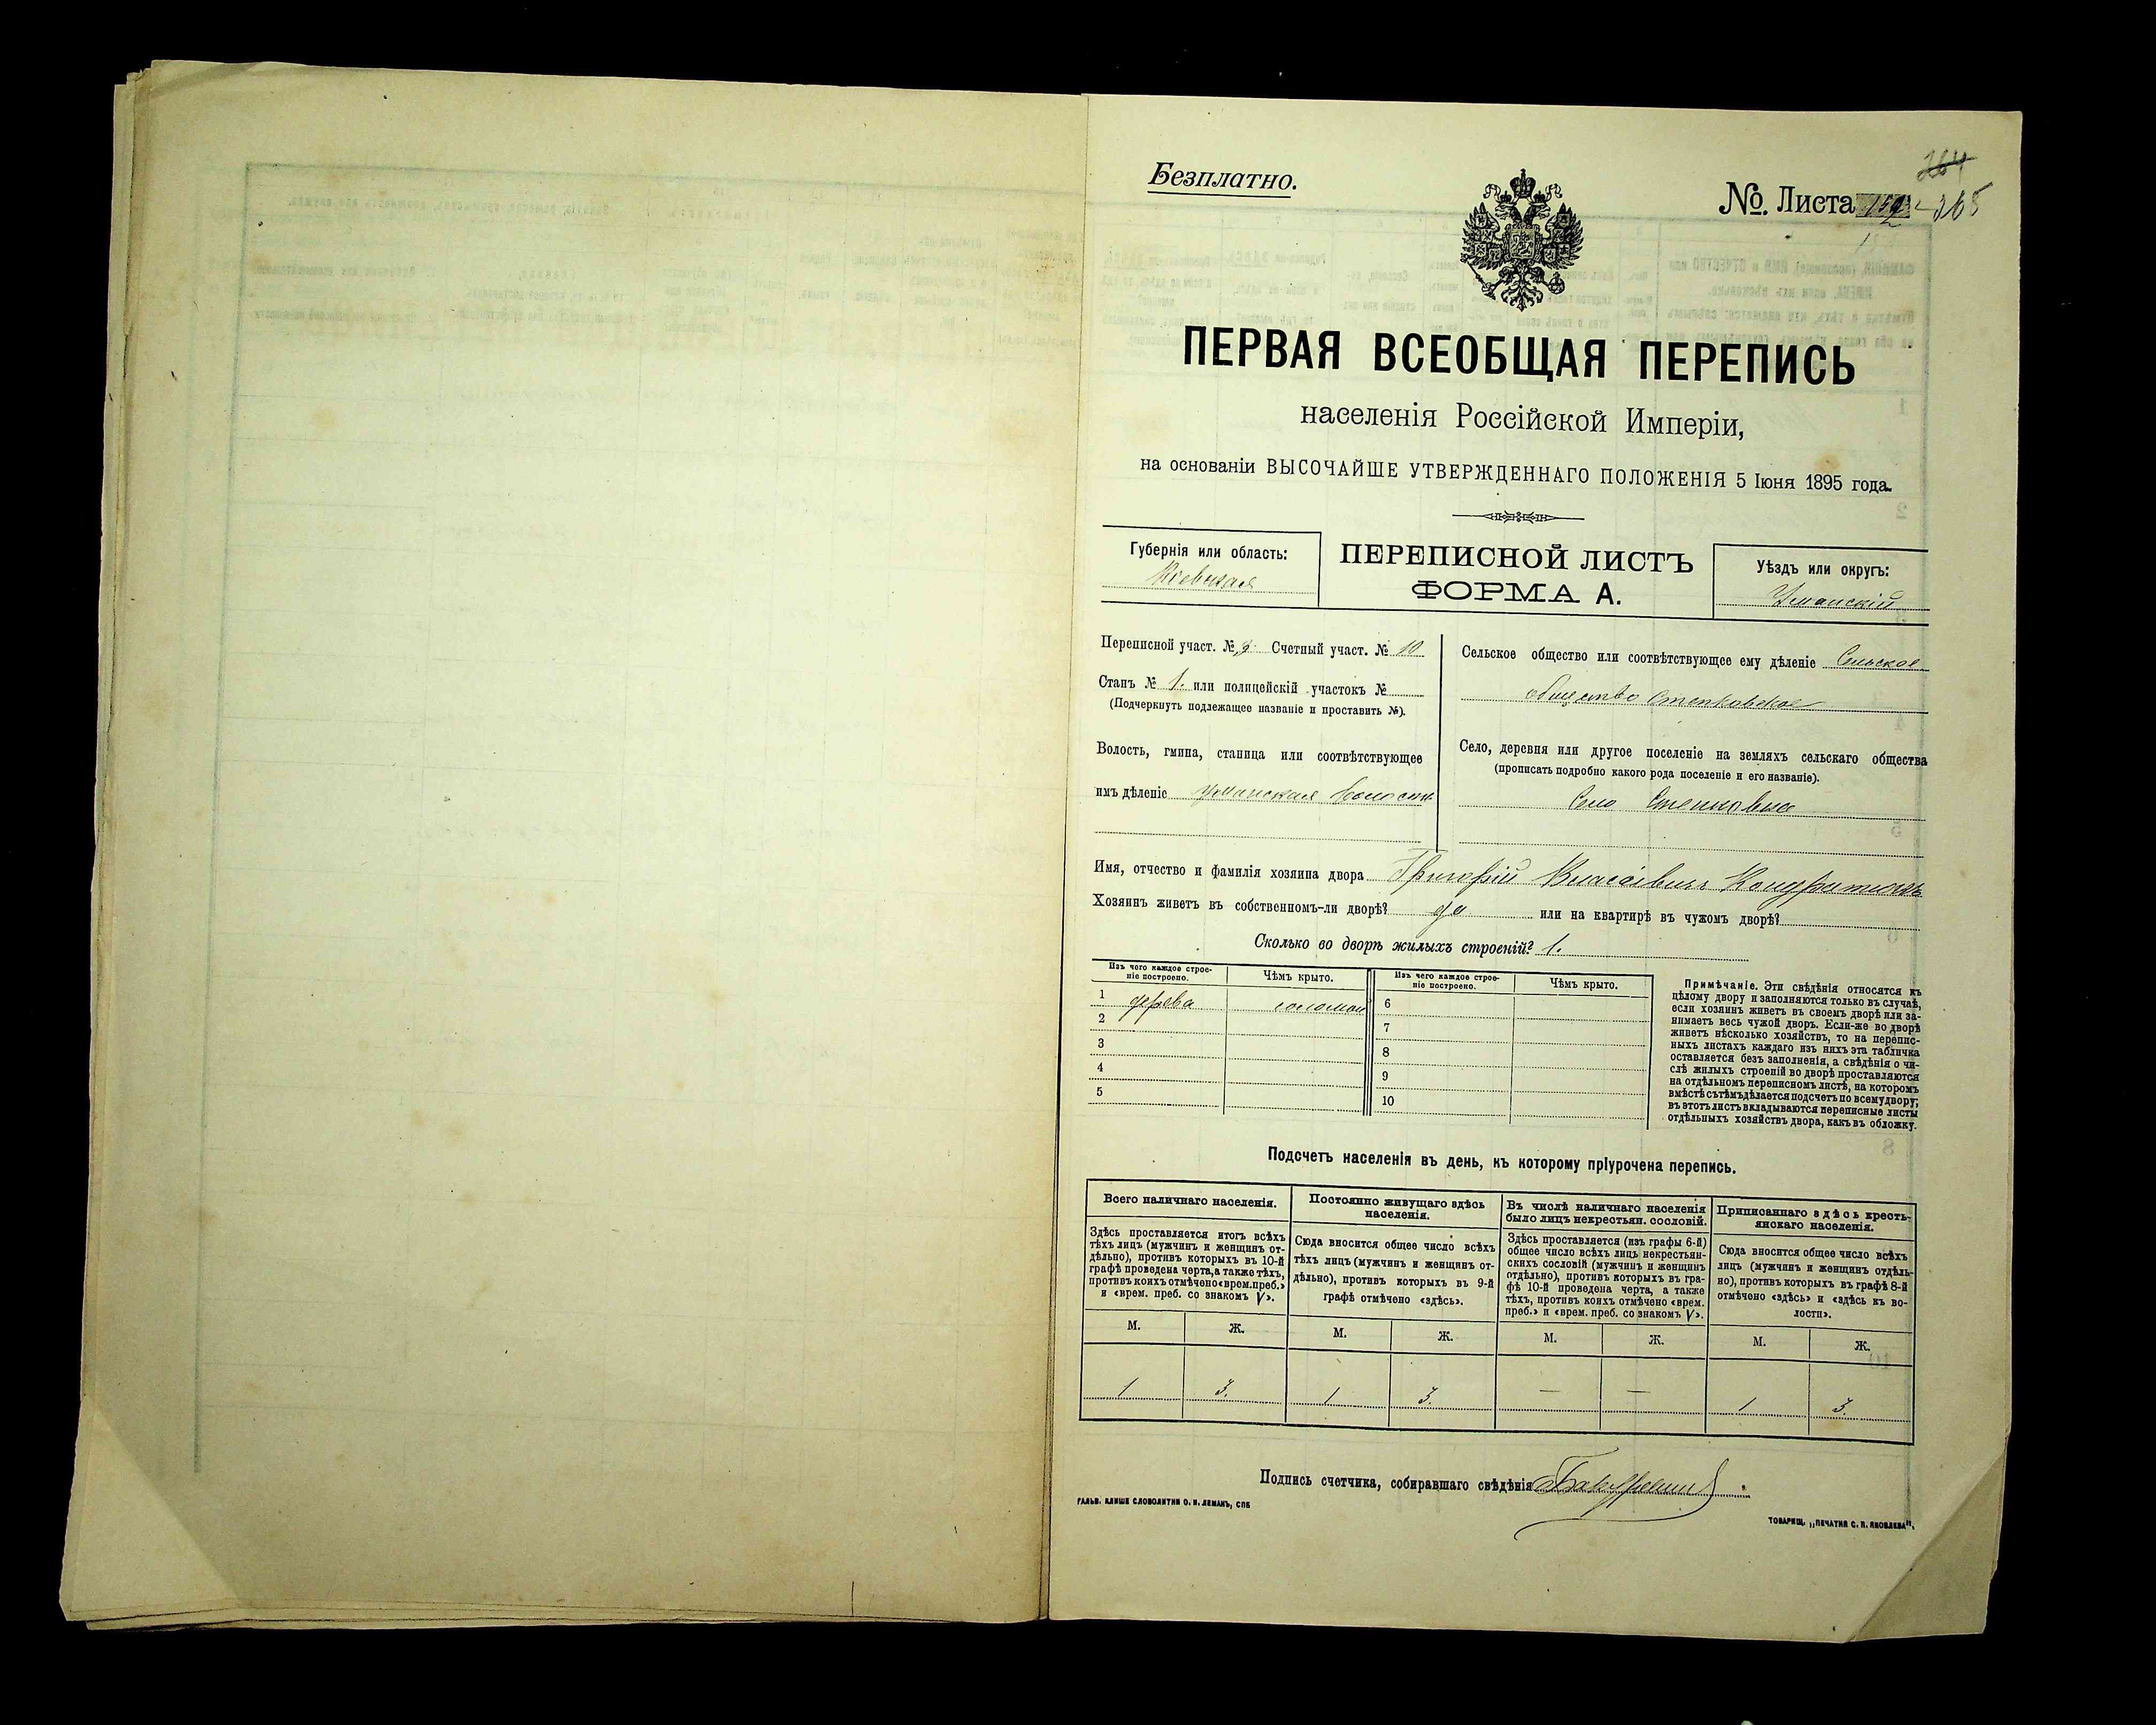 264
Безплатно.
№. Листа 152 265
ПЕРВАЯ ВСЕОБЩАЯ ПЕРЕПИСЬ
населенія Россійской Имперіи,
на основаніи ВЫСОЧАЙШЕ УТВЕРЖДЕННАГО ПОЛОЖЕНІЯ 5 Іюня 1895 года.
Губернія или область:
Кіевская
ПЕРЕПИСНОЙ ЛИСТЪ
ФОРМА А.
Уѣздъ или округъ:
Уманскій
Переписной участ. № 3 Счетный участ. № 10
Станъ № 1. или полицейскій участокъ №
(Подчеркнуть подлежащее названіе и проставить №).
Волость, гмина, станица или соотвѣтствующее
имъ дѣленіе Уманская волость
Сельское общество или соотвѣтствующее ему дѣленіе Сельское
общество Степковское
Село, деревня или другое поселеніе на земляхъ сельскаго общества
(прописать подробно какого рода поселеніе и его названіе).
Село Степковка
Имя, отчество и фамилія хозяина двора Григорій Власіевичъ Кондратюкъ
Хозяинъ живетъ въ собственномъ-ли дворѣ? да или на квартирѣ въ чужомъ дворѣ?
Сколько во дворѣ жилыхъ строеній? 1.
Изъ чего каждое строе-
ніе построено.
Чѣмъ крыто.
Изъ чего каждое строе-
ніе построено.
Чѣмъ крыто.
1 дерева соломой 6
2 7
3 8
4 9
5 10
Примѣчаніе. Эти свѣдѣнія относятся къ
цѣлому двору и заполняются только въ случаѣ,
если хозяинъ живетъ въ своемъ дворѣ или за-
нимаетъ весь чужой дворъ. Если-же во дворѣ
живетъ нѣсколько хозяйствъ, то на перепис-
ныхъ листахъ каждаго изъ нихъ эта табличка
оставляется безъ заполненія, а свѣдѣнія о чи-
слѣ жилыхъ строеній во дворѣ проставляются
на отдѣльномъ переписномъ листѣ, на которомъ
вмѣстѣ съ тѣмъ дѣлается подсчетъ по всему двору;
въ этотъ листъ вкладываются переписные листы
отдѣльныхъ хозяйствъ двора, какъ въ обложку.
Подсчетъ населенія въ день, къ которому пріурочена перепись.
Всего наличнаго населенія.
Здѣсь проставляется итогъ всѣхъ
тѣхъ лицъ (мужчинъ и женщинъ от-
дѣльно), противъ которыхъ въ 10-й
графѣ проведена черта, а также тѣхъ,
противъ коихъ отмѣчено «врем. преб.»
и «врем. преб. со знакомъ V».
Постоянно живущаго здѣсь
населенія.
Сюда вносится общее число всѣхъ
тѣхъ лицъ (мужчинъ и женщинъ от-
дѣльно), противъ которыхъ въ 9-й
графѣ отмѣчено «здѣсь».
Въ числѣ наличнаго населенія
было лицъ некрестьян. сословій.
Здѣсь проставляется (изъ графы 6-й)
общее число всѣхъ лицъ некрестьян-
скихъ сословій (мужчинъ и женщинъ
отдѣльно), противъ которыхъ въ гра-
фѣ 10-й проведена черта, а также
тѣхъ, противъ коихъ отмѣчено «врем.
преб.» и «врем. преб. со знакомъ V».
Приписаннаго здѣсь кресть-
янскаго населенія.
Сюда вносится общее число всѣхъ
лицъ (мужчинъ и женщинъ отдѣль-
но), противъ которыхъ въ графѣ 8-й
отмѣчено «здѣсь» и «здѣсь къ во-
лости».
М. Ж. М. Ж. М. Ж. М. Ж.
1 3. 1 3. — — 1 3.
Подпись счетчика, собиравшаго свѣдѣнія
ГАЛЬВ. КЛИШЕ СЛОВОЛИТНИ О. И. ЛЕМАНЪ, СПБ
ТОВАРИЩ. „ПЕЧАТНЯ С. П. ЯКОВЛЕВА".